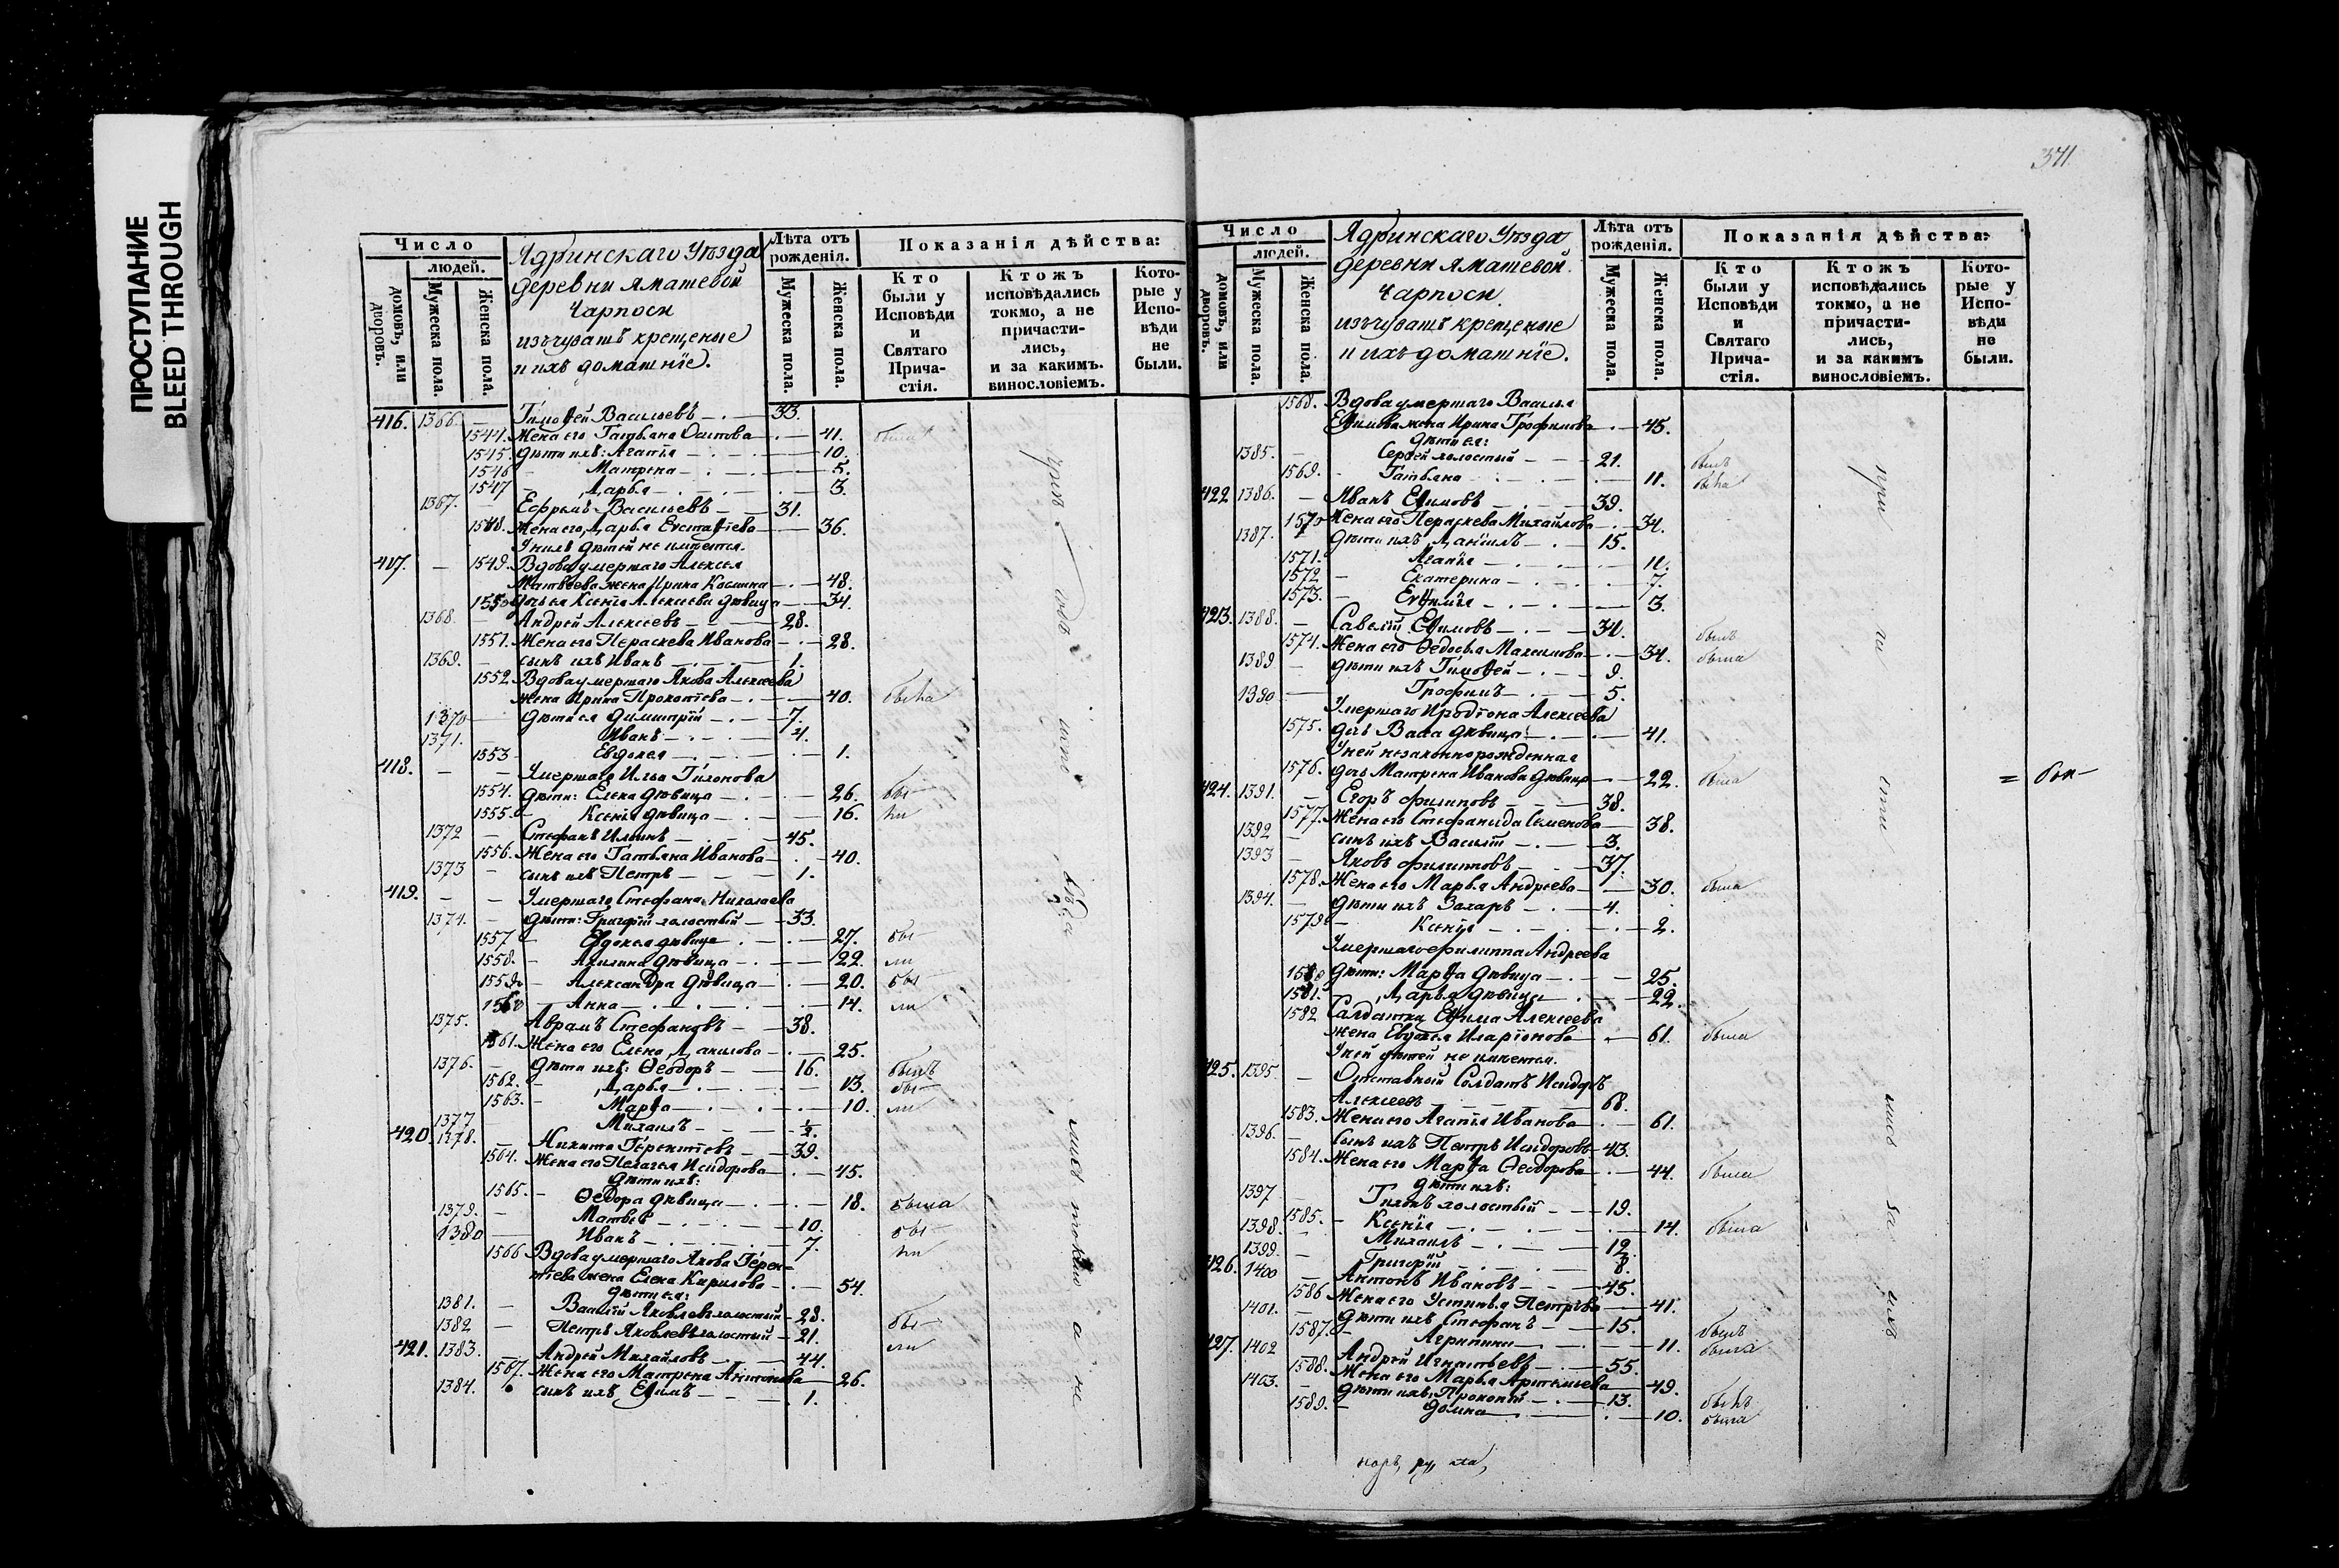 ПРОСТУПАНИЕ
BLEED THROUGH
Число
людей.
домовъ, или дворовъ.
Мужеска пола.
Женска пола.
Ядринскаго Уѣзда
деревни Яматевой
Чарпоси
изъ чувашъ крещеные
и ихъ домашніе.
Лѣта отъ рожденія.
Мужеска пола.
Женска пола.
Показанія дѣйства:
Кто были у Исповѣди и Святаго Прича-стія.
Ктожъ исповѣдались токмо, а не причасти-лись, и за какимъ. винословіемъ.
Кото-рые у Испо-вѣди не были.
416. 1366. — Тимоѳей Васильевъ — 33.
1544. Жена его Татьяна Осипова — 41.
1545. Дѣти ихъ: Агапія — 10.
1546 — Матрена — 5.
1547 — Дарья — 3.
1367. — Ефремъ Васильевъ — 31.
1548. Жена его Дарья Евстаѳіева — 36.
У нихъ дѣтей не имѣется.
417. — 1549. Вдова умершаго Алексея
Матвѣева жена Ирина Космина — 48.
1550 дочь ея Ксенія Алексеева дѣвица — 34.
1368. — Андрей Алексеевъ — 28.
1551. Жена его Пераскева Иванова — 28.
1369. — сынъ ихъ Иванъ — 1.
1552. Вдова умершаго Якова Алексеева
жена Ирина Прокопіева — 40. была
1370 — дѣти ея Димитрій — 7.
1371. Иванъ — 4.
1553 Евдокея — 1.
418. — — Умершаго Ильи Тихонова
1554. дѣти: Елена дѣвица — 26. бы
1555. Ксенія дѣвица — 16. ли
1372 — Стефанъ Ильинъ — 45.
1556. Жена его Татьяна Иванова — 40.
1373 — сынъ ихъ Петръ — 1.
419. — — Умершаго Стефана Николаева
1374. — дѣти: Григорій холостый — 33.
1557 — Евдокья дѣвица — 27. бы
1558. — Акилина дѣвица — 22. ли
1559. — Александра дѣвица — 20. бы
1560 — Анна — 14. ли
1375. Аврамъ Стефановъ — 38.
1561. Жена его Елена Данилова — 25.
1376. — Дѣти ихъ: Ѳеодоръ — 16. былъ
1562. — Дарья — 13. бы
1563. — Марѳа — 10. ли
1377 Михаилъ — ½.
420. 1378. — Никита Терентіевъ — 39.
1564. Жена его Пелагея Исидорова — 45.
Дѣти ихъ:
1565. — Ѳедора дѣвица — 18. была
1379. — Матвѣй — 10. бы
1380 — Иванъ — 7. ли
1566 Вдова умершаго Якова Терен-
тіева жена Елена Кирилова — 54.
Дѣти ея:
1381. — Василій Яковлевъ холостый — 28. бы
1382 — Петръ Яковлевъ холостый — 21. ли
421. 1383. — Андрей Михайловъ — 44.
1567. Жена его Матрена Антонова — 26.
1384. сынъ ихъ Евѳимъ — 1.
лись токмо а не
371
Число
людей.
домовъ, или дворовъ.
Мужеска пола.
Женска пола.
Ядринскаго Уѣзда
деревни Яматевой.
Чарпоси.
изъ чувашъ крещеные
и ихъ домашніе.
Лѣта отъ рожденія.
Мужеска пола.
Женска пола.
Показанія дѣйства:
Кто были у Исповѣди и Святаго Прича-стія.
Ктожъ исповѣдались токмо, а не причасти-лись, и за какимъ винословіемъ.
Кото-рые у Испо-вѣди не были.
1568. Вдова умершаго Василья
Евѳимова жена Ирина Трофимова — 45.
дѣти ея:
1385. — Сергей холостый — 21. былъ
1569. — Татьяна — 11. была
422 1386. — Иванъ Евѳимовъ — 39.
1570 Жена его Пераскева Михайлова — 34.
1387. Дѣти ихъ Даніилъ — 15.
1571. — Агапія — 11.
1572 — Екатерина — 7.
1573. — Евѳимія — 3.
423. 1388. — Савелій Евѳимовъ — 34. былъ
1574. Жена его Ѳедосья Максимова — 34. была
1389 — дѣти ихъ Тимоѳей — 9.
1390 — Трофимъ — 5.
Умершаго Иродіона Алексеева
1575. дочь Васса дѣвица — 41.
У ней незаконнорожденная
1576. дочь Матрена Иванова дѣвица — 22. была
424. 1391. — Егоръ Филиповъ — 38.
1577. Жена его Стефанида Семенова — 38.
1392 — сынъ ихъ Василій — 3.
1393 — Яковъ Филиповъ — 37.
1578. Жена его Марья Андреева — 30. была
1394. — дѣти ихъ Захаръ — 4.
1579. — Ксенія — 2.
Умершаго Филиппа Андреева
1580 дѣти: Марѳа дѣвица — 25.
1581. Дарья дѣвица — 22.
1582 Салдатка Евѳима Алексеева
жена Евдокья Иларіонова — 61. была
У ней дѣтей не имѣется.
425. 1395 — Отставный Солдатъ Исидоръ
Алексеевъ — 68.
1583. Жена его Агапія Иванова — 61.
1396. — Сынъ ихъ Петръ Исидоровъ — 43.
1584. Жена его Марѳа Ѳеодорова — 44. была
Дѣти ихъ:
1397 — Тихонъ холостый — 19.
1585. — Ксенія — 14. была
1398. — Михаилъ — 12.
1399. — Григорій — 8.
426. 1400 Антонъ Ивановъ — 45.
1586 Жена его Устинья Петрова — 41.
1401. — Дѣти ихъ Стефанъ — 15. былъ
1587. — Агрипина — 11. была
427. 1402 Андрей Игнатьевъ — 55.
1588. Жена его Марья Артемьева — 49.
1403. — дѣти ихъ: Прокопій — 13. былъ
1589. — Домна — 10. была
при
ли
лись
за
ихъ